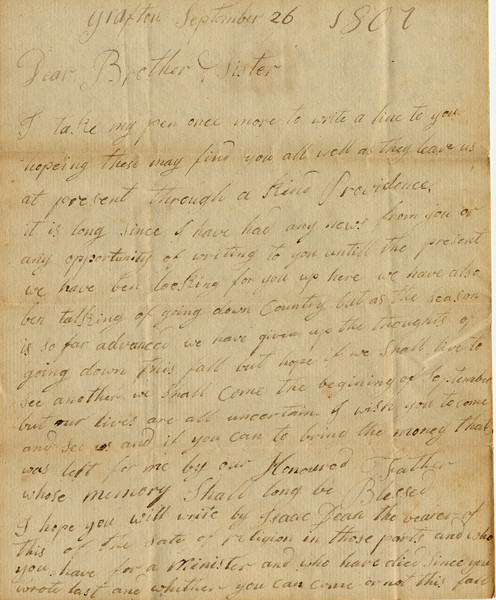 Grafton September 26 1807
Dear Brother & Sister
I take my pen once more to write a line to you
hopeing these may find you all well as they leave us
at present through a Kind Providence,
it is long since I have had any news from you or
any opportunity of writing to you untill the present
we have ben looking for you up here we have also
ben talking of going down Country but as the season
is so far advanced we have given up the thoughts of
going down this fall but hope if we shall live to
see another we shall come the begining of September
but our lives are all uncertain I wish you to come
and see us and if you can to bring the money that
was left for me by our Honoured Father
whose memory Shall long be Blessed
I hope you will write by Isaac Dean the bearer of
this of the sate of religion in those parts and who
you have for a Minister and who have died since you
wrote last and whether you can come or not this fall